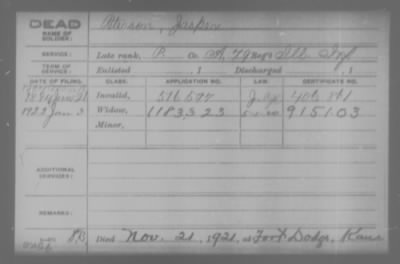 DEAD
NAME OF SOLDIER:
Peterson, Jasper
SERVICE:
Late rank, P. Co. A, 79 Reg't Ills. Inf
TERM OF SERVICE:
Enlisted , 1 Discharged , 1
DATE OF FILING. CLASS. APPLICATION NO. LAW. CERTIFICATE NO.
Invalid,
1922 Jan 3 Widow, 1183323 915103
Minor,
ADDITIONAL SERVICES:
REMARKS:
Died Nov. 21, 1921, at Fort Dodge, Kans